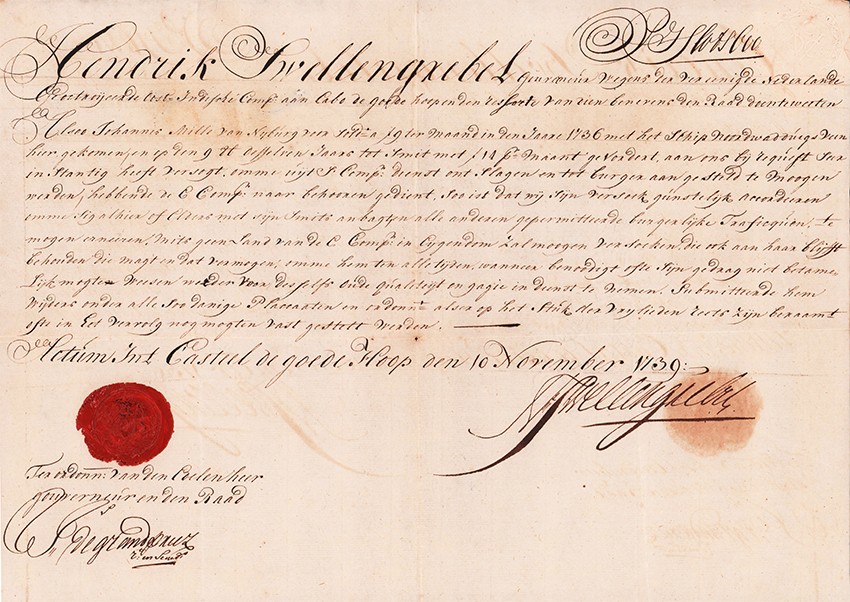 Hendrik Swellengrebel Gouverneur wegens de Vereenigde Nederlandse
Geoctroijeerde Oost Indische Comp: aan Cabo de goede hoop en den ressorte van dien benevens den Raad doen te weeten
Alsoo Johannis Mille van Nyburg voor Soldaat 19ter Maand in den Jaare 1736 met het Schip Noordwaddings veen
hier gekomen, en op den 9 8b deselven Jaars tot Smit met f 14 p:r maant gevordert, aan ons bij request Sur
in Stantig heeft versogt, omme uijt S' Comp:s dienst ontslagen en tot burger aangesteld te moogen
werden, hebbende de E Comp: naar behooren gedient, Soo ist dat wij Sijn Versoek gunstelijk accordeeren
omme Sig alhier of Elders met sijn Smits anbagt en alle anderen gepermitteerde burgerlijke Trafiquen, te
mogen erneeren, mits geen Land van de E Comp:e in Eygendom zal moogen versoeken, die ook aan haar blijfft
behouden die magt en dat vermogen, omme hem ten alle tijden, wanneer benoodigt ofte Sijn gedrag niet betame
Lijk mogte weesen weder voor desselfs oude qualiteyt en gagie in dienst te nemen. Submitteerende hem
wijders onder alle Soodanige Placcaaten en ordonn:s als er op het Stuk der vrylieden reets zijn beraamt
ofte in het vervolg nog mogten vast gestelt werden.
Actum Int Casteel de goede Hoop den 10 November 1739:
Swellengrebel
Ter ordonn: van den Edelen heer
gouverneur en den Raad
J: de grandpreez